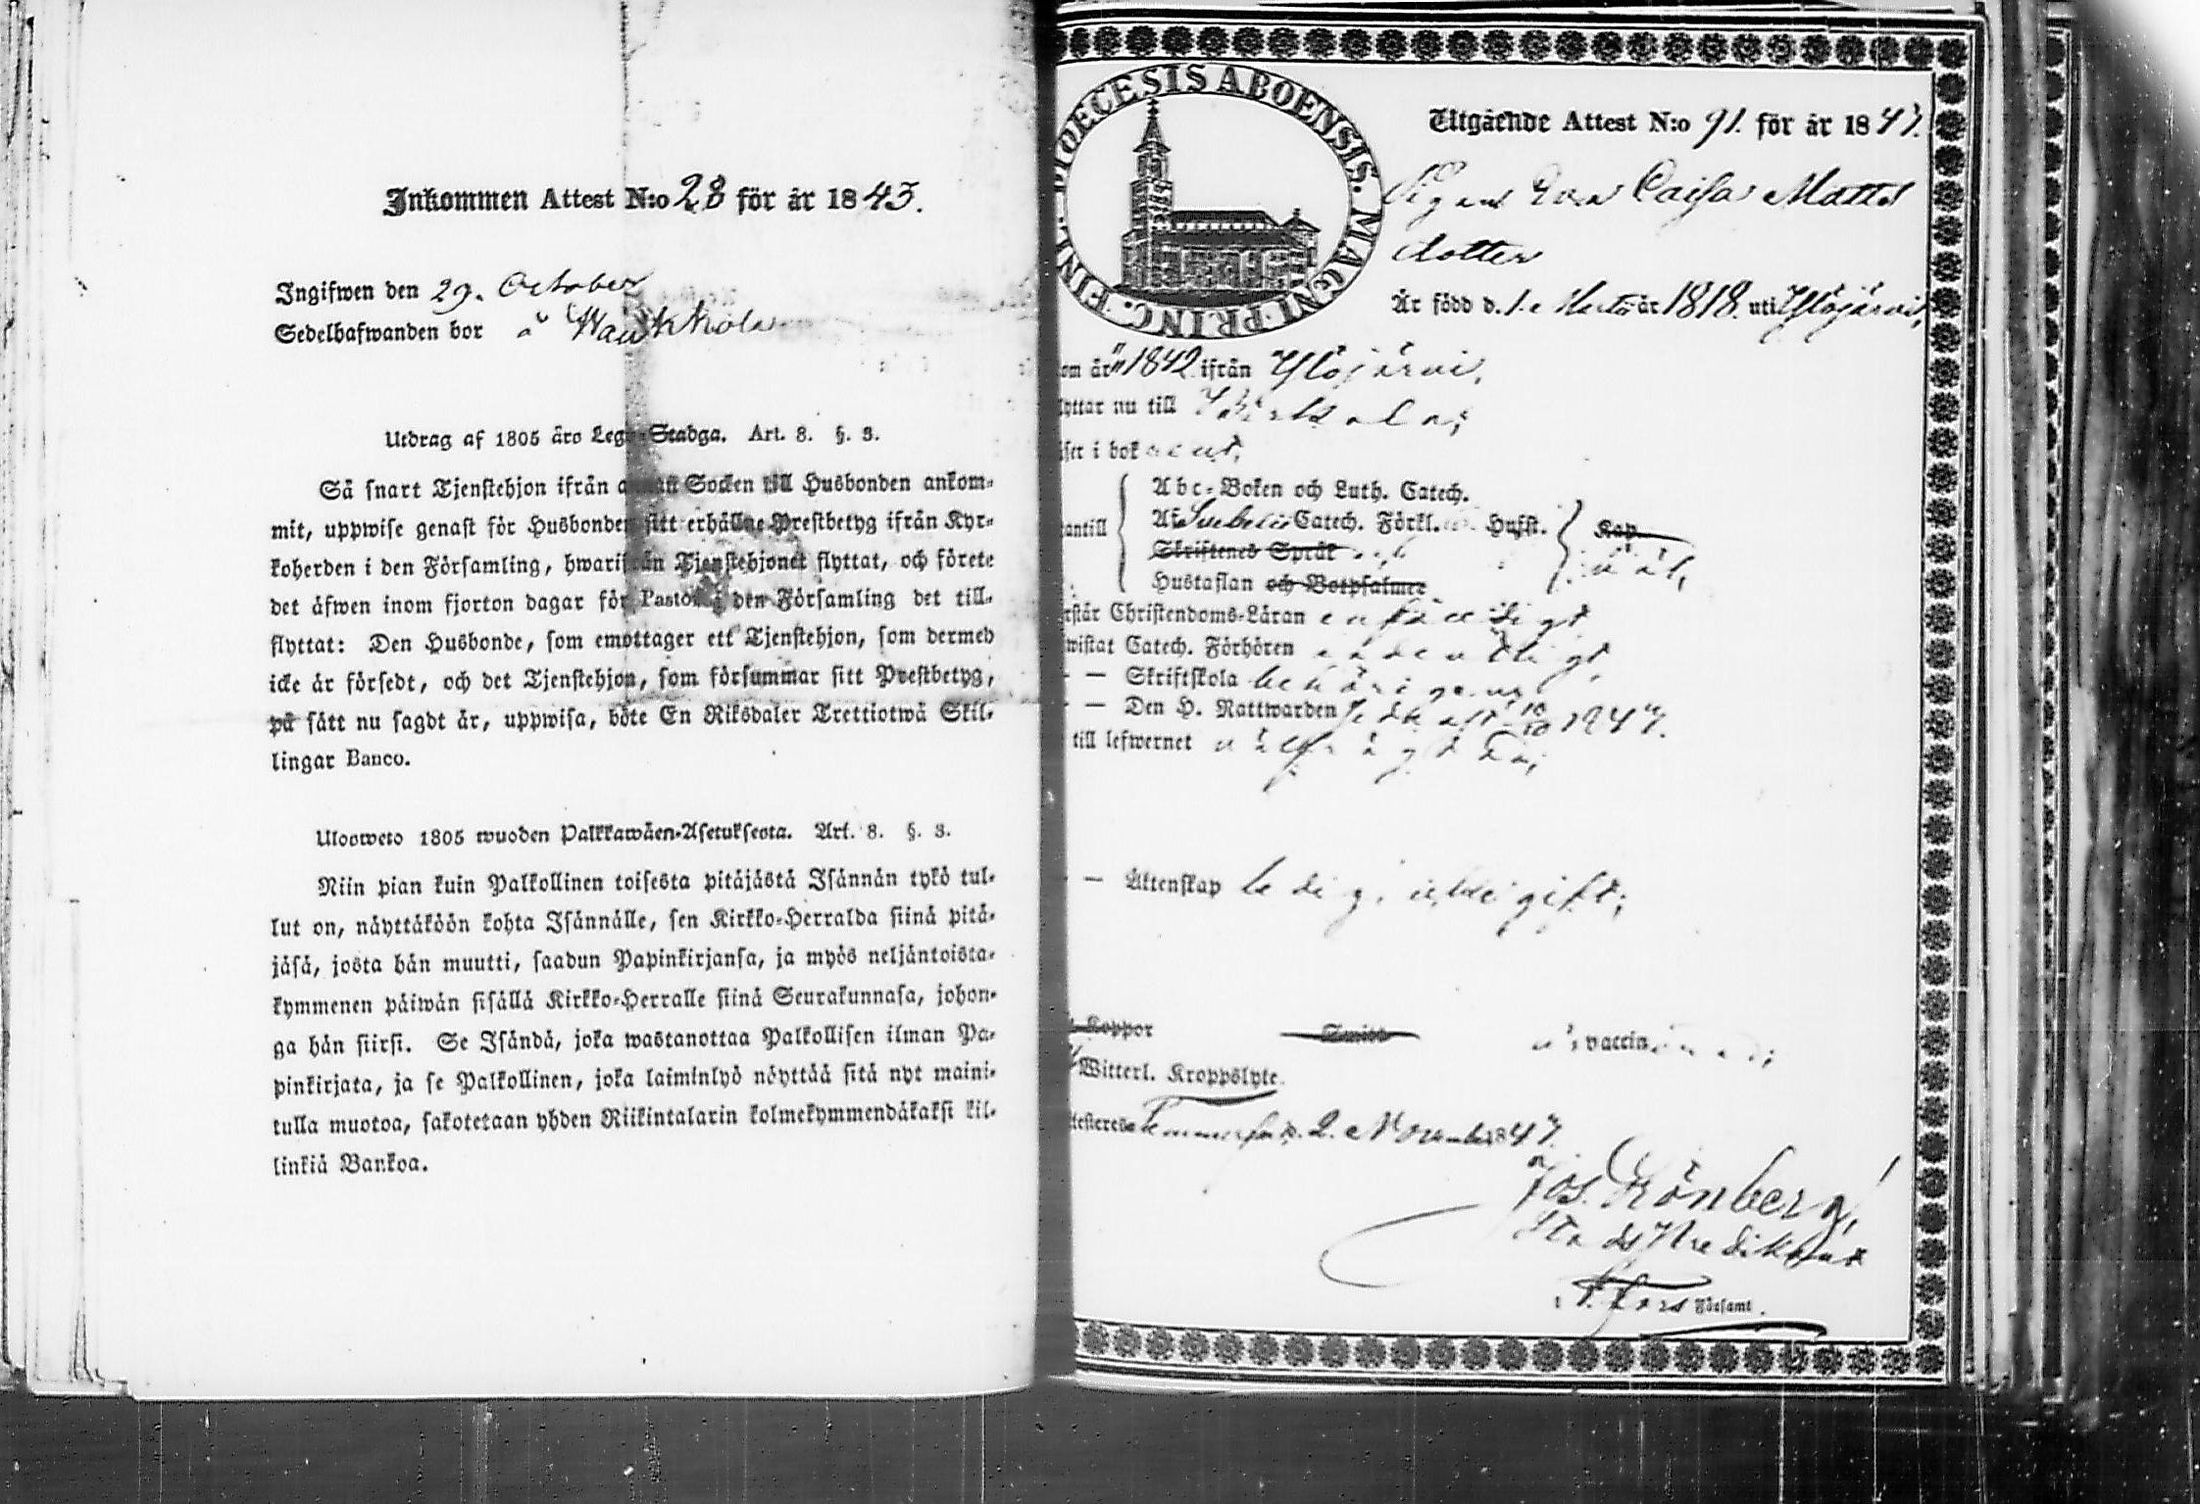 Inkommen Attest N:o 28 för år 1843.
Ingifwen den 29. October
Sedelhafwanden bor å
Utdrag af 1805 års Lego-Stadga. Art. 8. §. 3.
Så snart Tjenstehjon ifrån annan Socken till Husbonden ankom-
mit, uppwise genast för Husbonden sitt erhållne Prestbetyg ifrån Kyr-
koherden i den Församling, hwarifrån Tjenstehjonet flyttat, och förete
det äfwen inom fjorton dagar för Pastor i den Församling det till-
flyttat: Den Husbonde, som emottager ett Tjenstehjon, som dermed
icke är försedt, och det Tjenstehjon, som försummar sitt Prestbetyg,
på sätt nu sagdt är, uppwisa, böte En Riksdaler Trettiotwå Skil-
lingar Banco.
Ulosweto 1805 wuoden Palkkawäen-Asetuksesta. Art. 8. §. 3.
Niin pian kuin Palkollinen toisesta pitäjästä Isännän tykö tul-
lut on, näyttäköön kohta Isännälle, sen Kirkko-Herralda siinä pitä-
jäsä, josta hän muutti, saadun Papinkirjansa, ja myös neljäntoista-
kymmenen päiwän sisällä Kirkko-Herralle siinä Seurakunnasa, johon-
ga hän siirsi. Se Isändä, joka wastanottaa Palkollisen ilman Pa-
pinkirjata, ja se Palkollinen, joka laiminlyö näyttää sitä nyt maini-
tulla muotoa, sakotetaan yhden Riikintalarin kolmekymmendäkaksi kil-
linkiä Bankoa.
DIOECESIS ABOENSIS. MAGNI PRINC. FINL.
Utgående Attest N:o 91. för år 1847.
Pigan Eva Caisa Matts
dotter
Är född d. 1. Martii år 1818. uti Ylöjärvi,
om år 1842 ifrån Ylöjärvi,
lyttar nu till Pirkala;
äser i bok
antill
Abc-Boken och Luth. Catech.
Af Svebelii Catech. Förkl. Hufst.
Kap
Skriftenes Språk
Hustaflan och Botpsalmer
rstår Christendoms-Läran enfaldigt
wistat Catech. Förhören ordentligt,
— Skriftskola behörigen
— Den H. Nattwarden sedn. 10/10 1847.
till lefwernet välfrägdad;
— Äktenskap ledig, till gift;
Koppor
vaccinerad;
Witterl. Kroppslyte.
testeres Tammerfors. 2. November 1847.
Jos. Grönberg,
Stads Predikant
T.fors Församl.